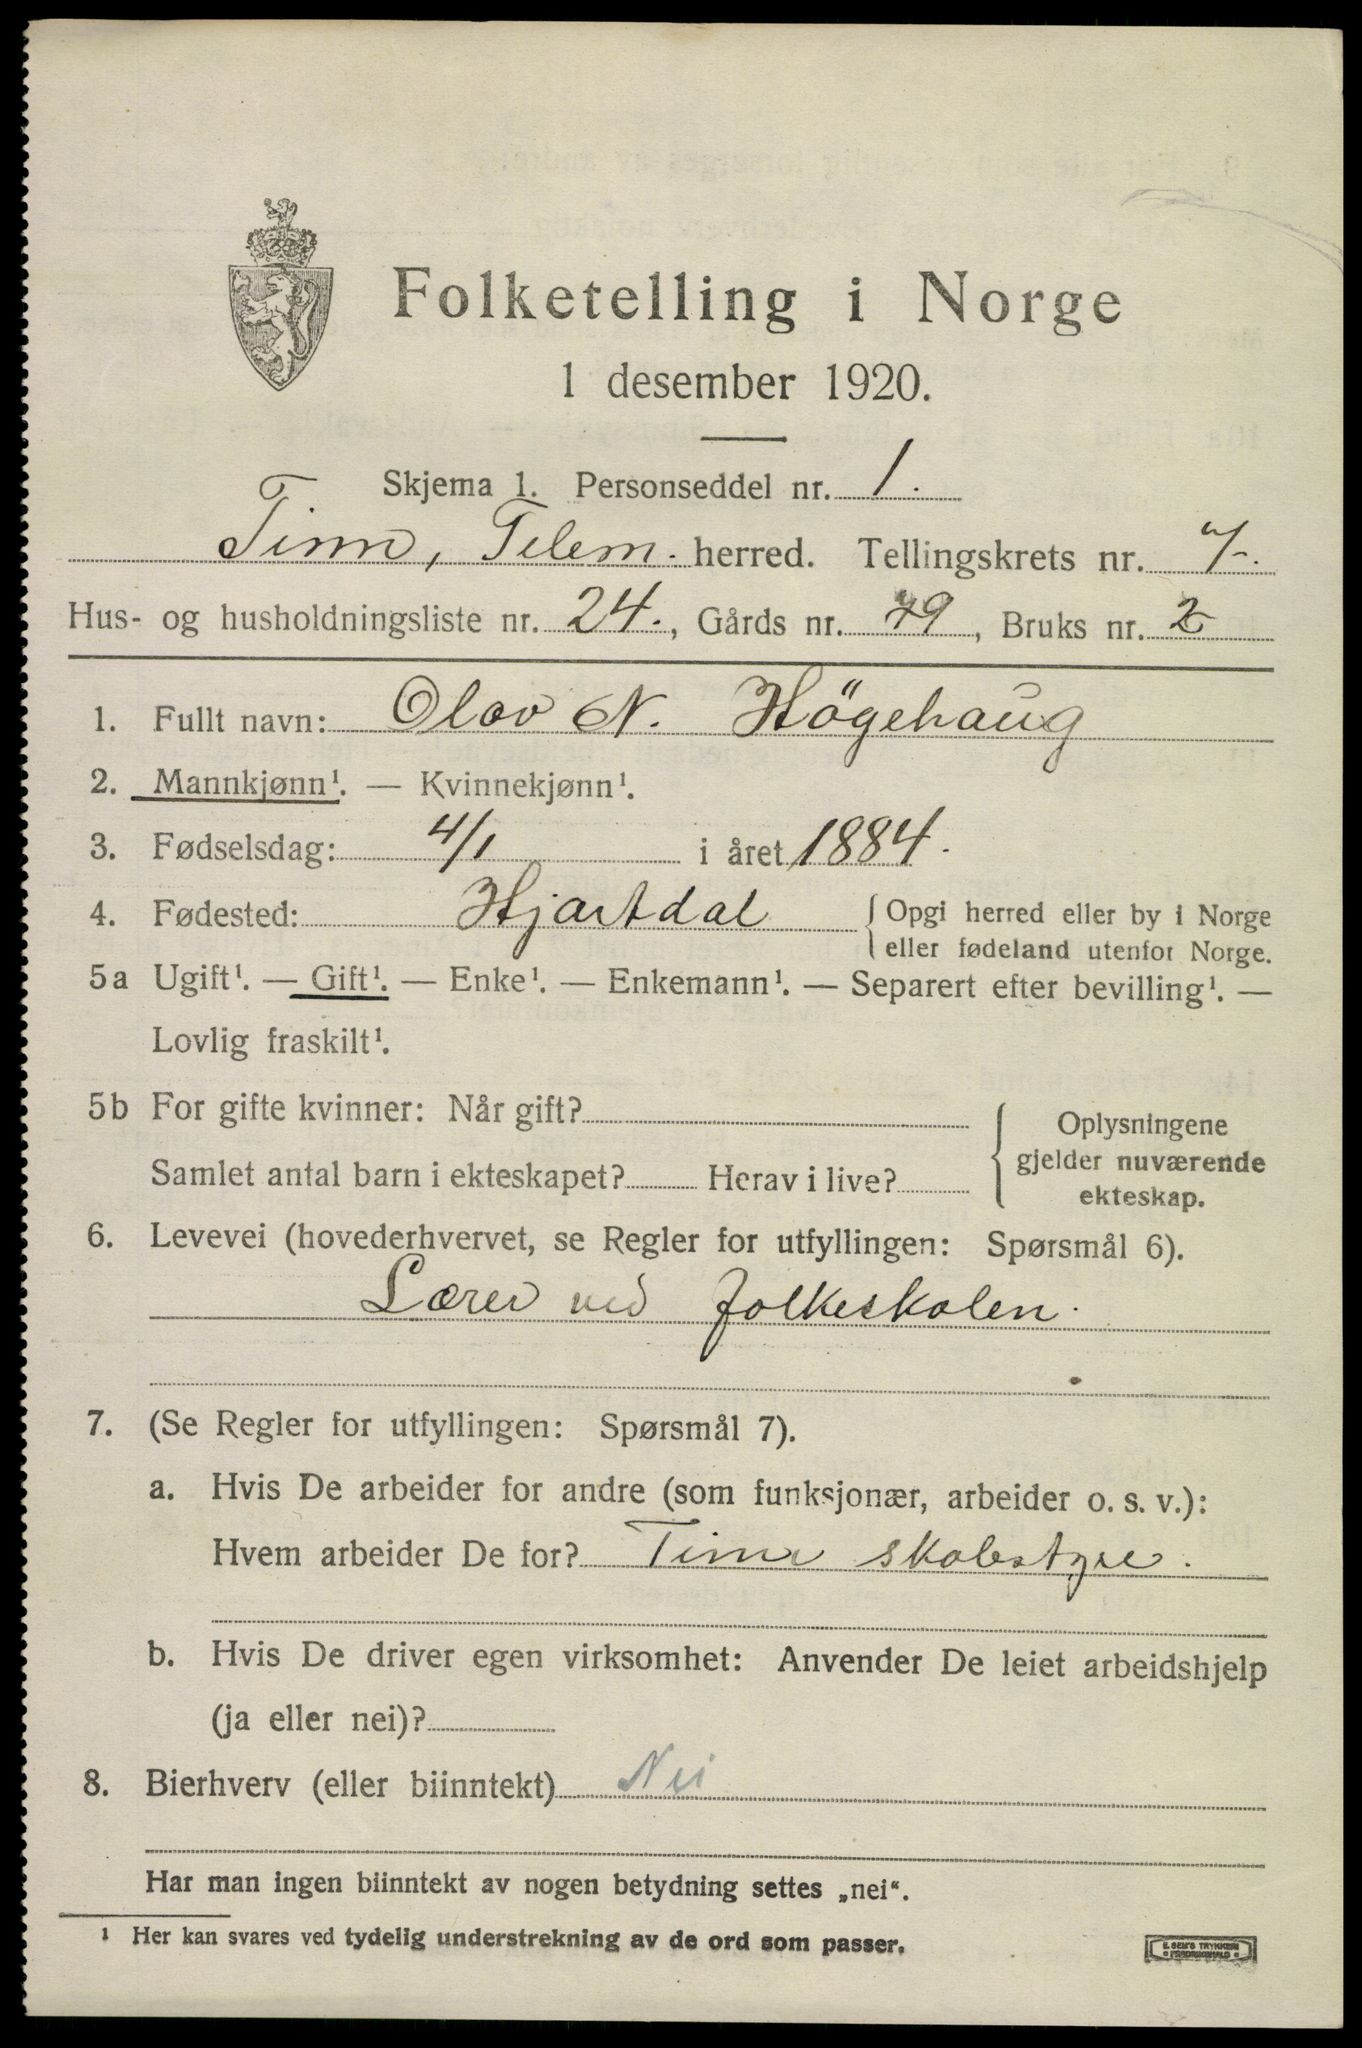 Folketelling i Norge
1 desember 1920.
Skjema 1. Personseddel nr. 1.
Tinn, Telem. herred. Tellingskrets nr. 7.
Hus- og husholdningsliste nr. 24., Gårds nr. 79, Bruks nr. 2
1. Fullt navn: Olav N. Högehaug
2. Mannkjønn¹. — Kvinnekjønn¹.
3. Fødselsdag: 4/1 i året 1884.
4. Fødested: Hjartdal { Opgi herred eller by i Norge
eller fødeland utenfor Norge.
5a Ugift¹. — Gift¹. — Enke¹. — Enkemann¹. — Separert efter bevilling¹. —
Lovlig fraskilt¹.
5b For gifte kvinner: Når gift?
Samlet antal barn i ekteskapet? Herav i live?
{ Oplysningene
gjelder nuværende
ekteskap.
6. Levevei (hovederhvervet, se Regler for utfyllingen: Spørsmål 6).
Lærer ved folkeskolen.
7. (Se Regler for utfyllingen: Spørsmål 7).
a. Hvis De arbeider for andre (som funksjonær, arbeider o. s. v.):
Hvem arbeider De for? Tinn skolestyre.
b. Hvis De driver egen virksomhet: Anvender De leiet arbeidshjelp
(ja eller nei)?
8. Bierhverv (eller biinntekt) Nei
Har man ingen biinntekt av nogen betydning settes „nei“.
¹ Her kan svares ved tydelig understrekning av de ord som passer.
E. SEM'S TRYKKERI
FREDRIKSHALD